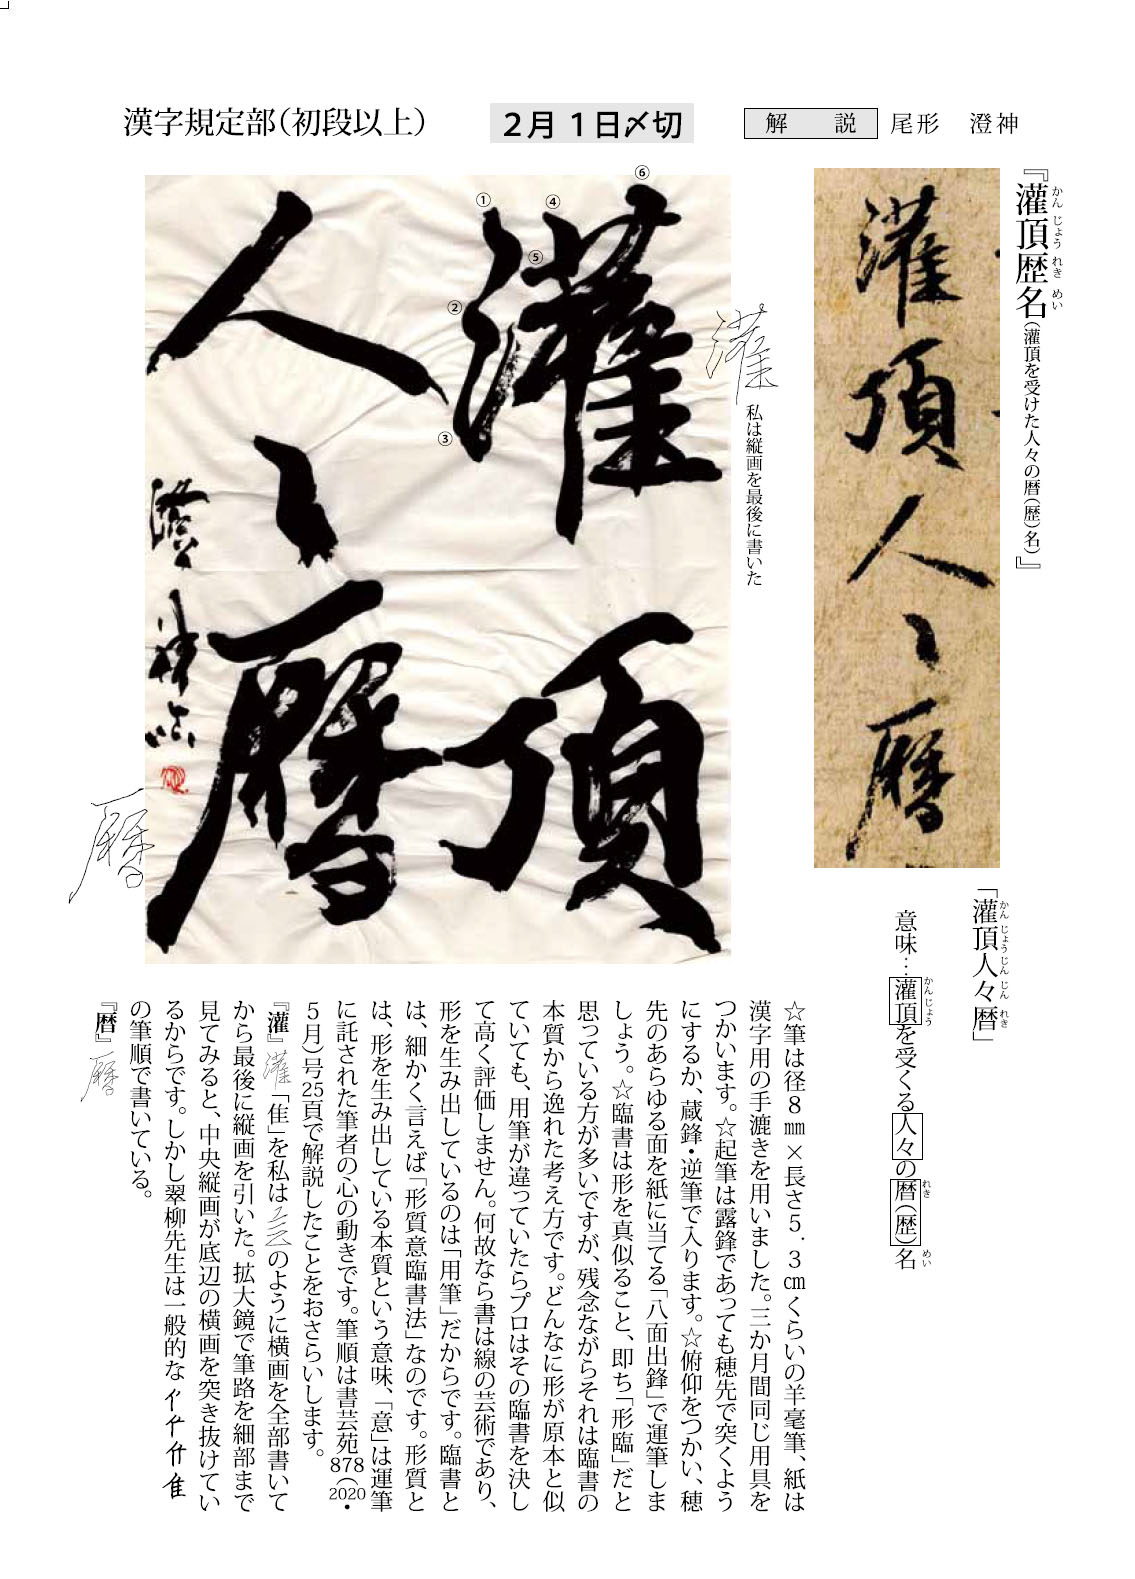 漢字規定部（初段以上）
2月1日〆切
解　説
尾形　澄神
『灌頂歴名（灌頂を受けた人々の暦（歴）名）』
かんじょうれきめい
灌頂人々暦
灌頂
人々暦
澄神臨
①
②
③
④
⑤
⑥
灌
私は縦画を最後に書いた
暦
「灌頂人々暦」
かんじょうじんじんれき
意味…灌頂を受くる人々の暦（歴）名
かんじょう
れき
めい
☆筆は径８㎜×長さ５.３㎝くらいの羊毫筆、紙は
漢字用の手漉きを用いました。三か月間同じ用具を
つかいます。☆起筆は露鋒であっても穂先で突くよう
にするか、蔵鋒・逆筆で入ります。☆俯仰をつかい、穂
先のあらゆる面を紙に当てる「八面出鋒」で運筆しま
しょう。☆臨書は形を真似ること、即ち「形臨」だと
思っている方が多いですが、残念ながらそれは臨書の
本質から逸れた考え方です。どんなに形が原本と似
ていても、用筆が違っていたらプロはその臨書を決し
て高く評価しません。何故なら書は線の芸術であり、
形を生み出しているのは「用筆」だからです。臨書と
は、細かく言えば「形質意臨書法」なのです。形質と
は、形を生み出している本質という意味、「意」は運筆
に託された筆者の心の動きです。筆順は書芸苑878（2020・
５月）号25頁で解説したことをおさらいします。
『灌』灌「隹」を私はのように横画を全部書いて
から最後に縦画を引いた。拡大鏡で筆路を細部まで
見てみると、中央縦画が底辺の横画を突き抜けてい
るからです。しかし翠柳先生は一般的な隹
の筆順で書いている。
『暦』暦